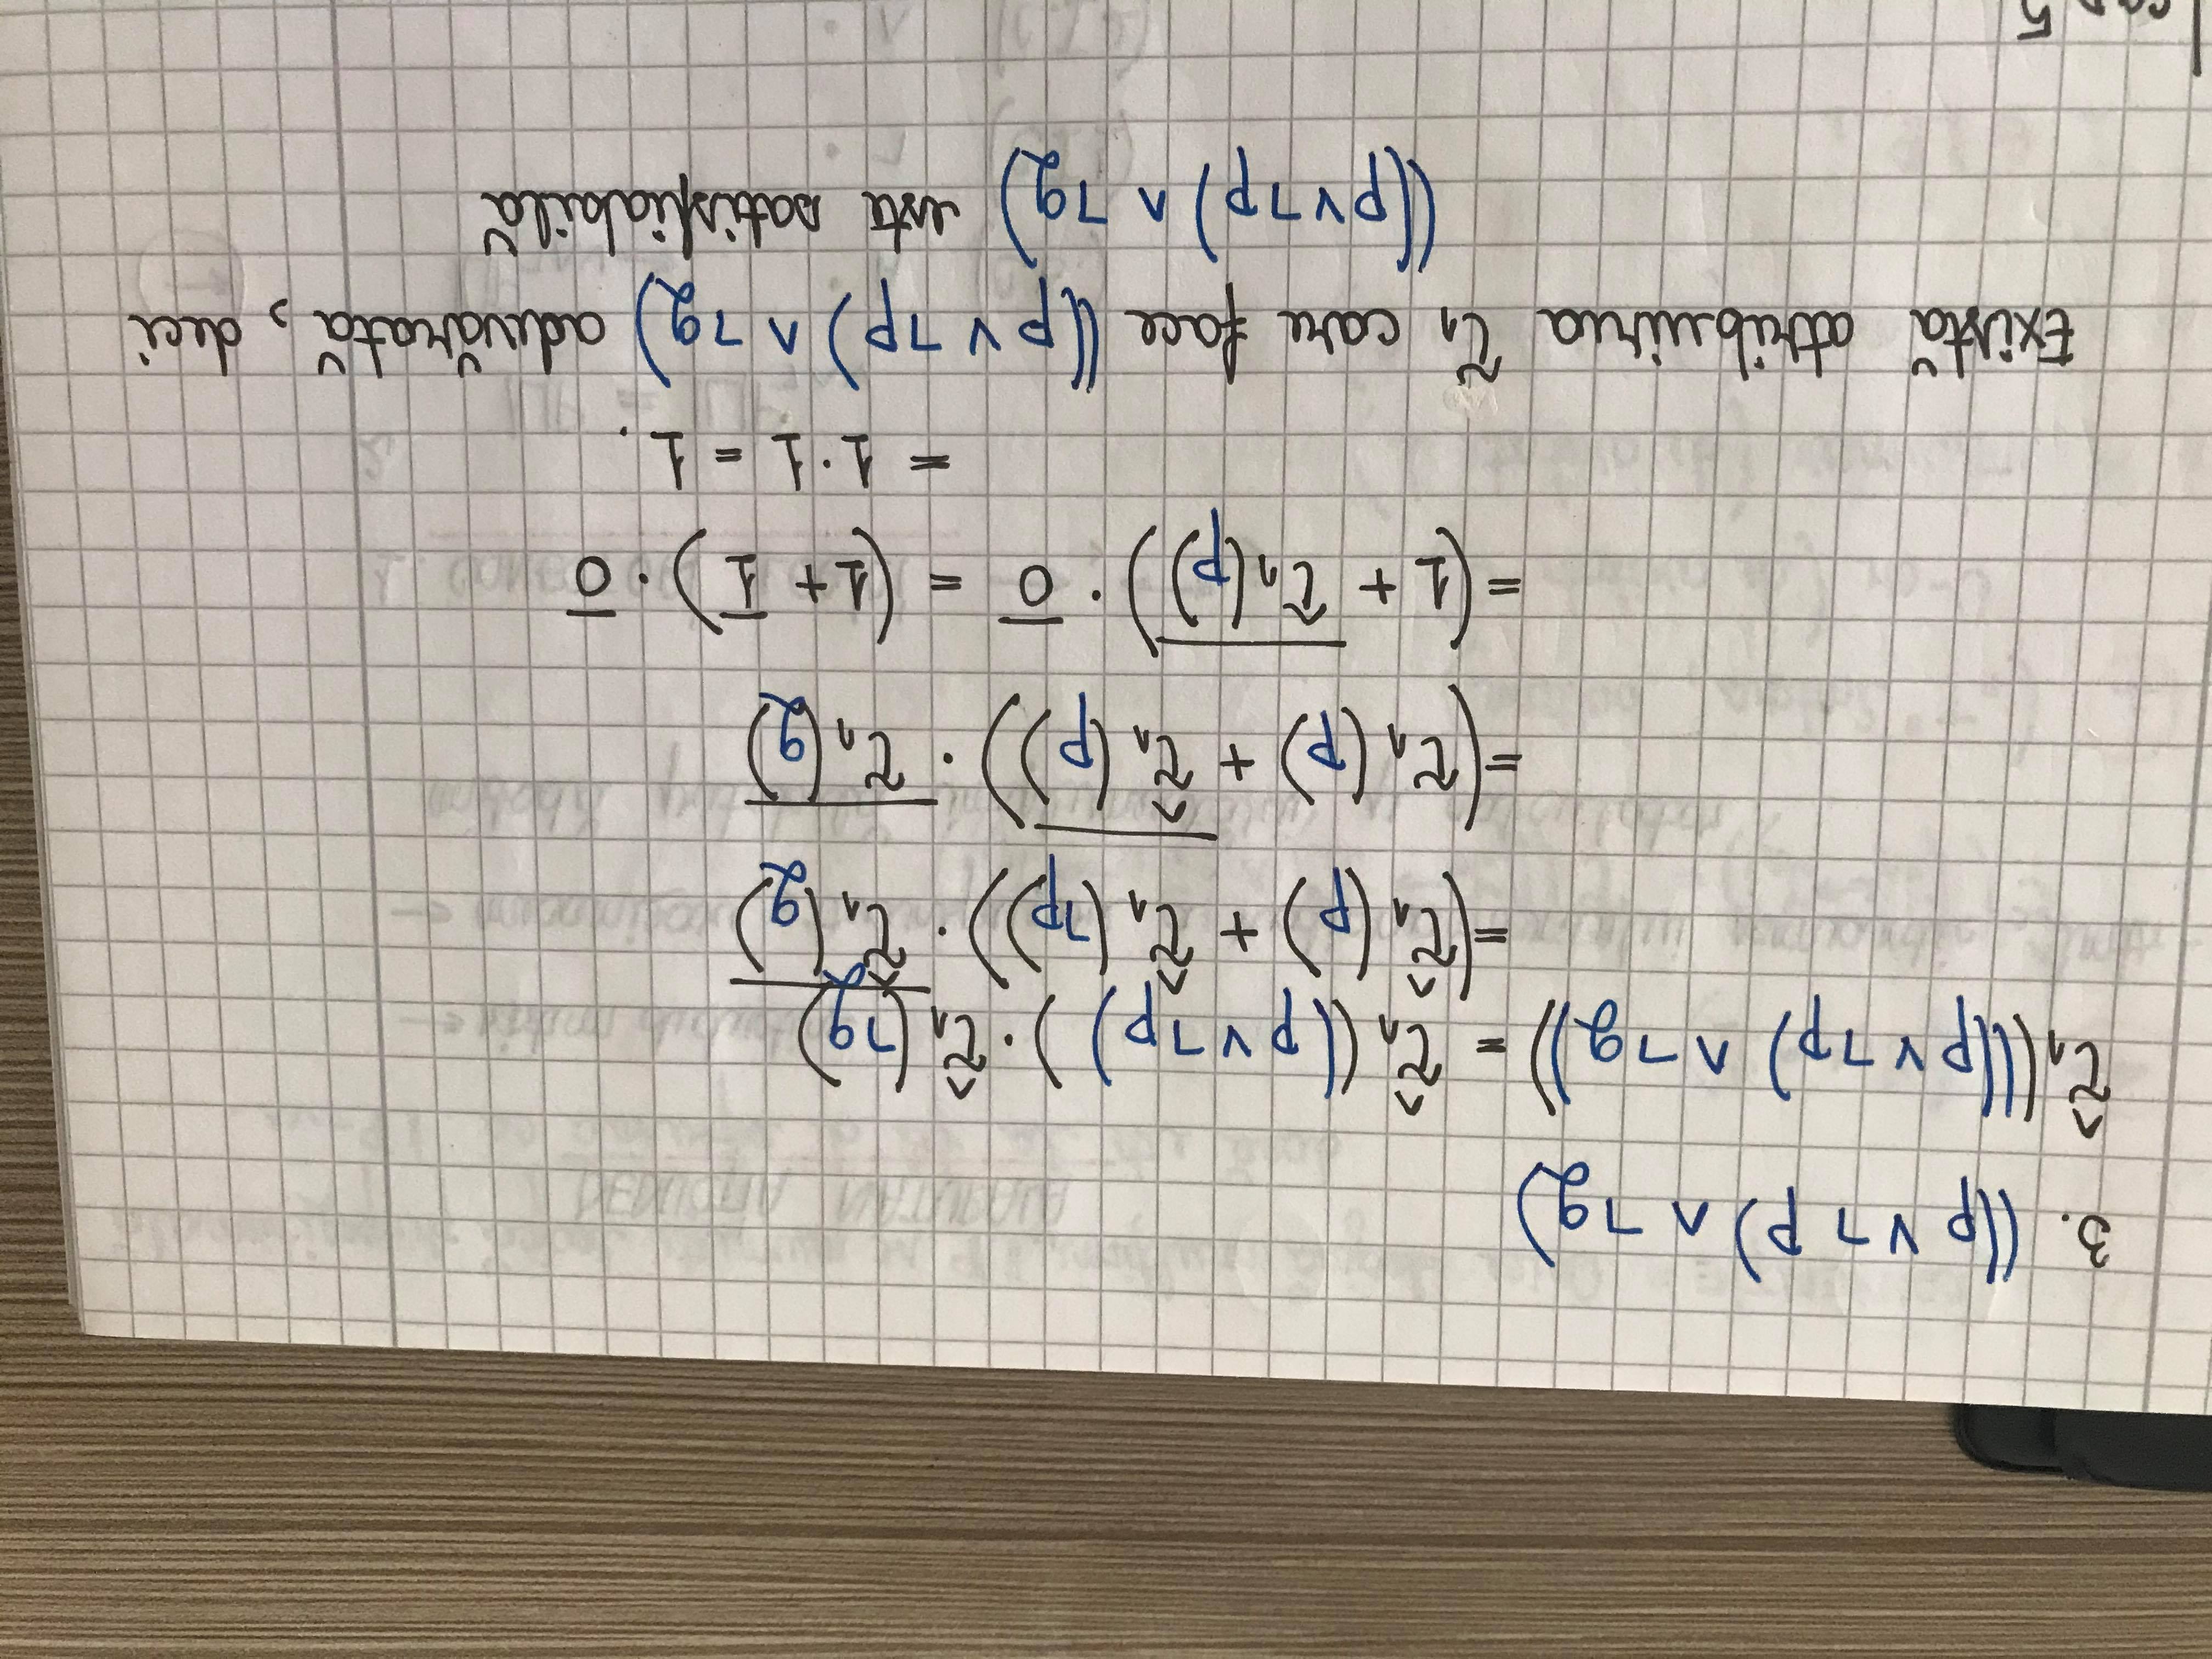 3. ((p ∨ ¬ p) ∧ ¬ q)
τ̂₁(((p ∨ ¬p) ∧ ¬q)) = τ̂₁((p ∨ ¬p)) · τ̂₁(¬q)
= (τ̂₁(p) + τ̂₁(¬p)) · \overline{τ̂₁(q)}
= (τ₁(p) + \overline{τ̂₁(p)}) · \overline{τ₁(q)}
= (1 + \overline{τ₁(p)}) · \overline{0} = (1 + \overline{1}) · \overline{0}
= 1 · 1 = 1.
Există atribuirea τ₁ care face ((p ∨ ¬p) ∧ ¬q) adevărată, deci
((p ∨ ¬p) ∧ ¬q) este satisfiabilă
cap 5